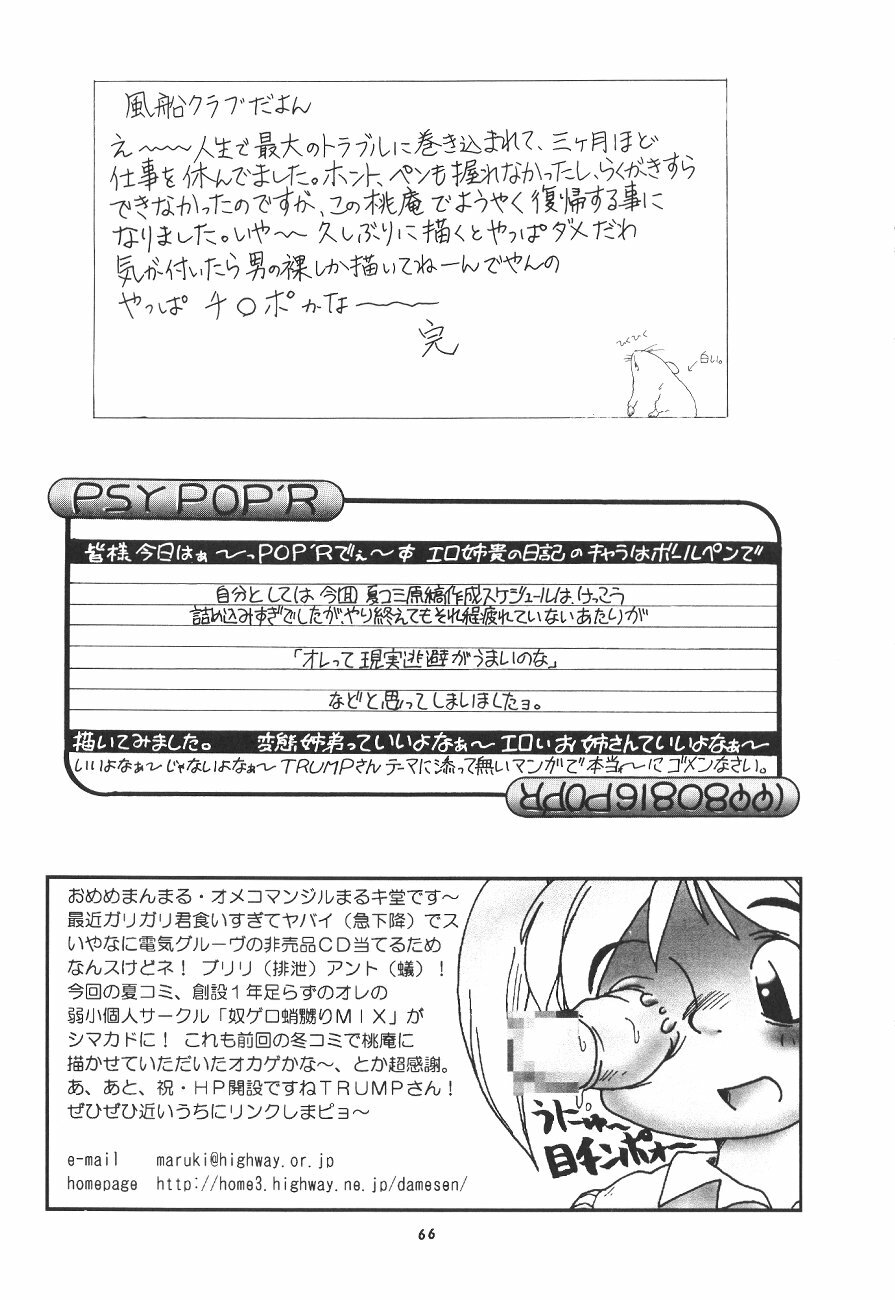 風船クラブだよん
え～～～人生で最大のトラブルに巻き込まれて、三ヶ月ほど
仕事を休んでました。ホント、ペンも握れなかったし、らくがきすら
できなかったのですが、この桃庵でようやく復帰する事に
なりました。いや～～久しぶりに描くとやっぱダメだわ
気が付いたら男の裸しか描いてねーんでやんの
やっぱチ○ポかな～～～～
完
ひくひく
白い。
PSY POP'R
皆様今日はぁ～っPOP'Rでぇ～す エロ姉貴の日記のキャラはボールペンで
自分としては今回夏コミ原稿作成スケジュールは、けっこう
詰め込みすぎでしたが、やり終えてもそれ程疲れていないあたりが
「オレって現実逃避がうまいのな」
などと思ってしまいましたョ。
描いてみました。 変態姉弟っていいよなぁ～エロいお姉さんていいよなぁ～
いいよなぁ～じゃないよなぁ～TRUMPさんテーマに添って無いマンガで本当ぉ～にゴメンなさい。
980816POP'R
おめめまんまる・オメコマンジルまるキ堂です～
最近ガリガリ君食いすぎてヤバイ（急下降）でス
いやなに電気グルーヴの非売品CD当てるため
なんスけどネ！ ブリリ（排泄）アント（蟻）！
今回の夏コミ、創設１年足らずのオレの
弱小個人サークル「奴ゲロ蛸嬲りＭＩＸ」が
シマカドに！ これも前回の冬コミで桃庵に
描かせていただいたオカゲかな～、とか超感謝。
あ、あと、祝・ＨＰ開設ですねＴＲＵＭＰさん！
ぜひぜひ近いうちにリンクしまピョ～
e-mail maruki@highway.or.jp
homepage http://home3.highway.ne.jp/damesen/
うにゅ～
目チンポォ～
66